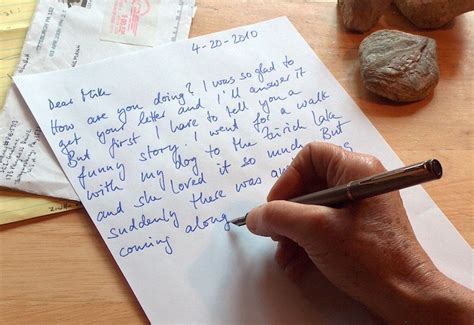 4-20-2010
Dear Mike
How are you doing? I was so glad to
get your letter and I'll answer it
But first I have to tell you a
funny story: I went for a walk
with my dog to the Zürich Lake
and she loved it so much. But
suddenly there was an
coming along